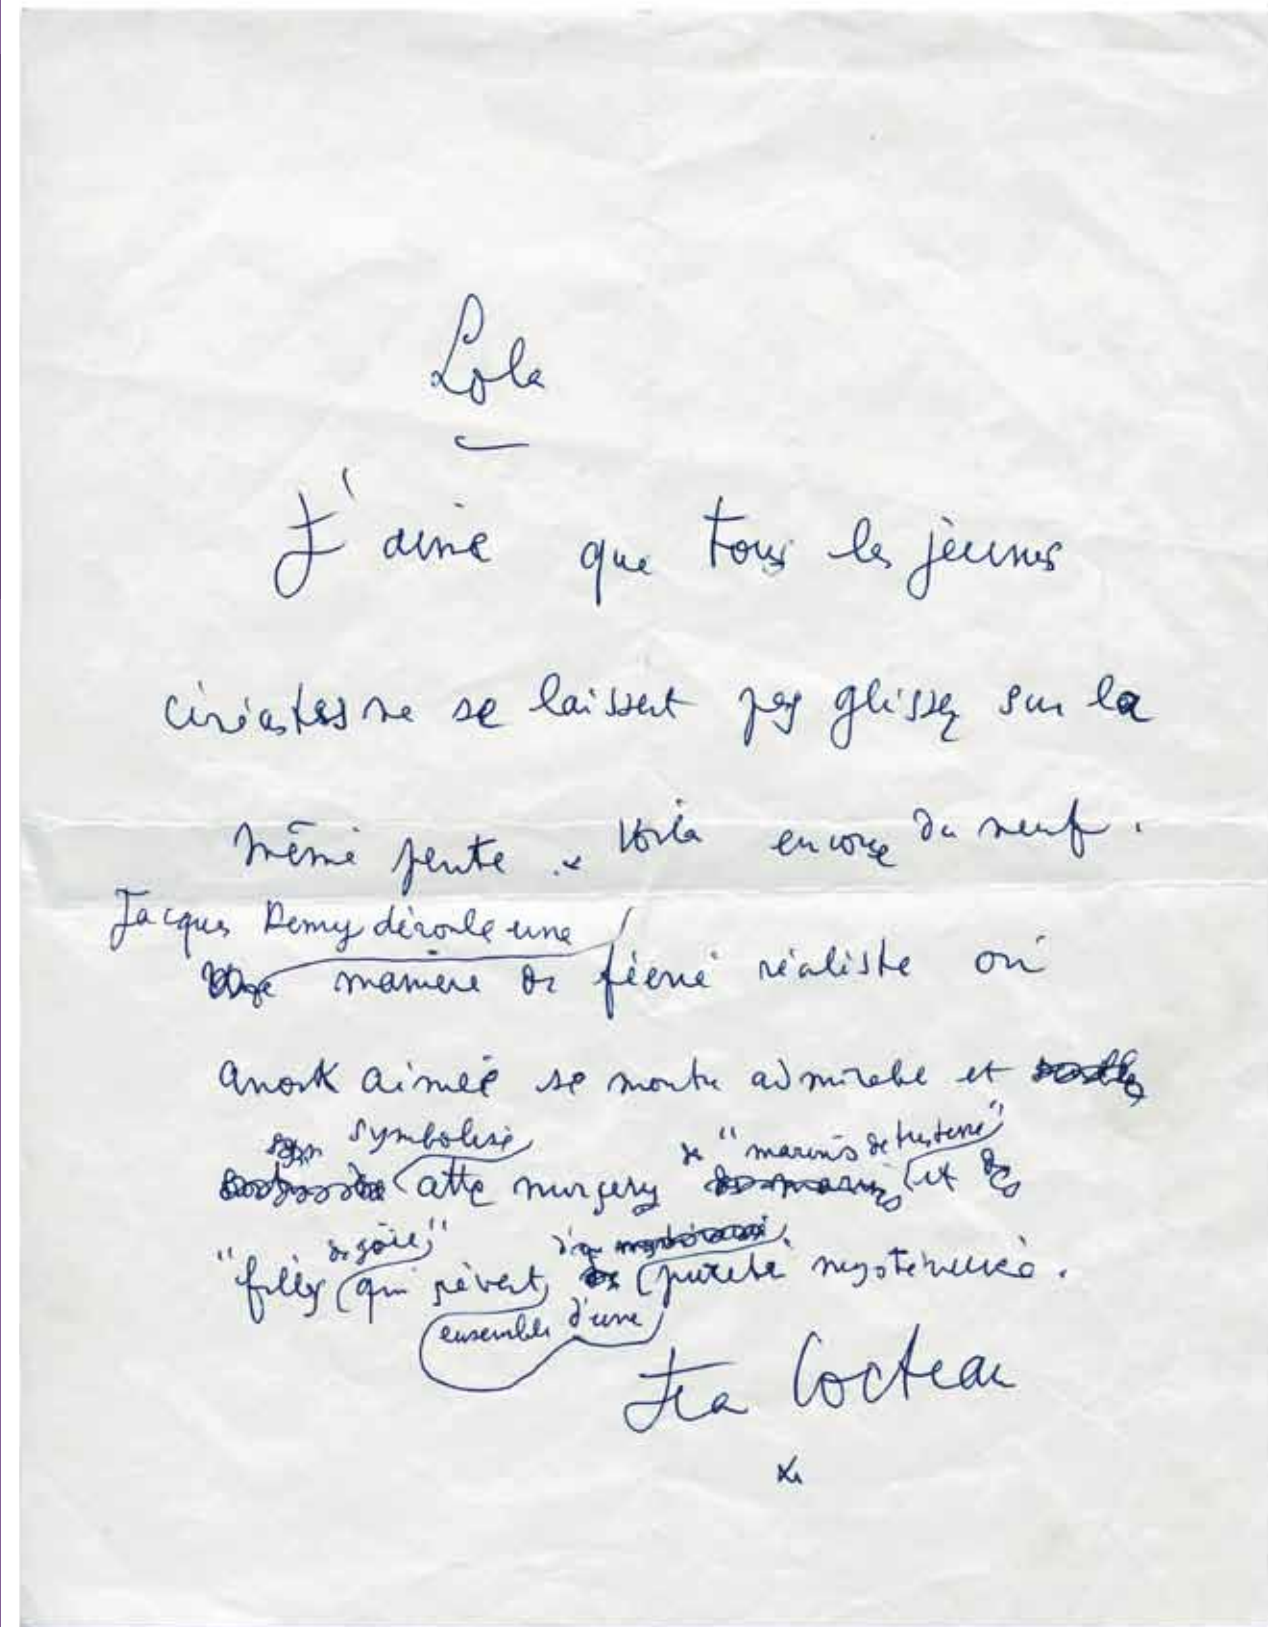 Lola
J'aime que tous les jeunes
cinéastes ne se laissent pas glisser sur la
même pente. Voilà encore du neuf.
Jacques Demy déroule une
manière de féerie réaliste où
Anouk Aimée se montre admirable et
symbolise
de "marins
cette nursery et de
de joie"
"filles qui rêvent pureté mystérieuse.
ensemble d'une
Jean Cocteau